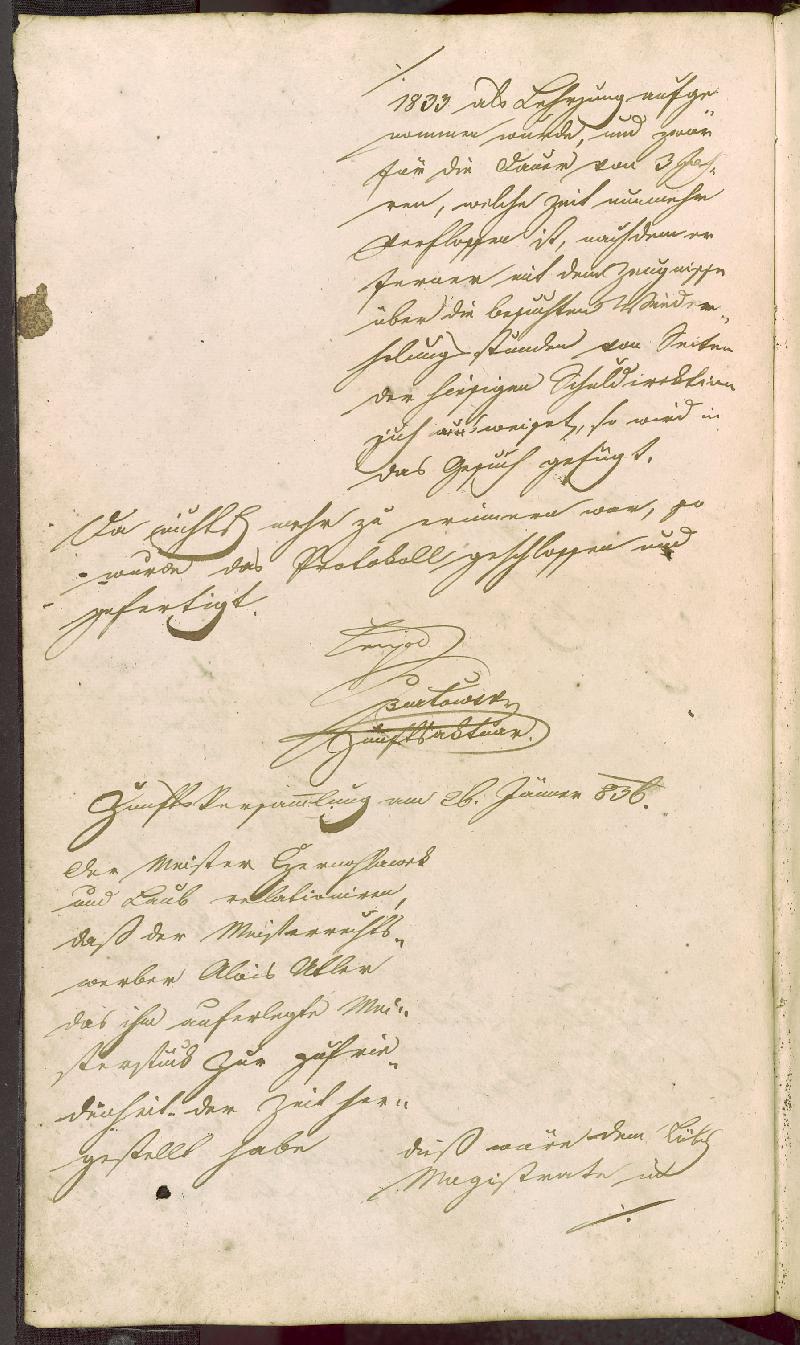 1833 als Lehrjung aufge
nommen wurde, und zwar
für die Dauer von 3 Jah-
ren, welche Zeit nunmehr
verflossen ist, nachdem er
ferner mit dem Zeugnisse
über die besuchten Wieder-
holungsstunden von Seiten
der hiesigen Schuldirektion
sich ausweiset, so wird in
das Gesuch gefügt.
Da nichts mehr zu erinnern war, so
wurde das Protokoll geschlossen und
gefertigt.
Zunftsaktuar.
Zunftsversammlung am 26. Jänner 836.
Der Meister
und Laub relationiren,
daß der Meisterrechts-
werber Alois Utler
das ihm auferlegte Mei-
sterstück zur Zufrie-
denheit der Zeit her-
gestellt habe
dieß wäre dem Löbl
Magistrate in
./.